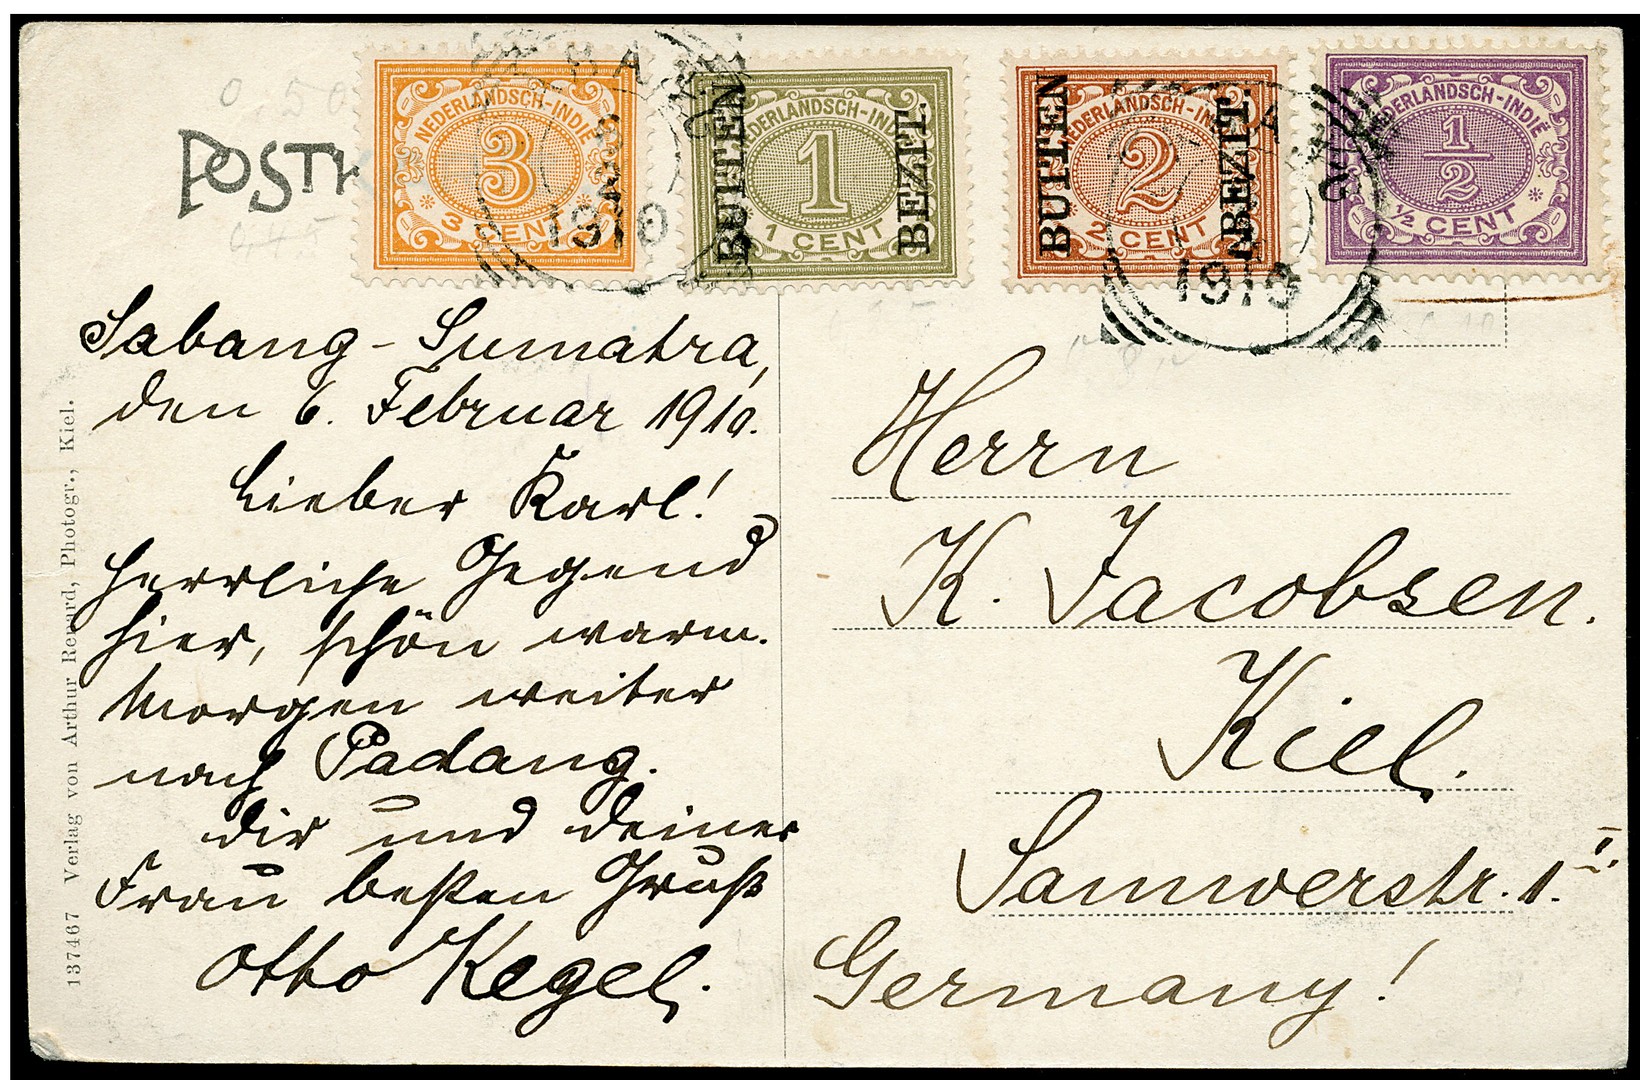 POSTK
NEDERLANDSCH-INDIË
3
3 CENT
1910
NEDERLANDSCH-INDIË
BUITEN BEZIT.
1
1 CENT
NEDERLANDSCH-INDIË
BUITEN BEZIT.
2
2 CENT
1910
NEDERLANDSCH-INDIË
1/2
1/2 CENT
Sabang - Sumatra,
den 6. Februar 1910.
Lieber Karl!
Herrliche Gegend
hier, schön warm.
Morgen weiter
nach Padang.
Dir und deiner
Frau besten Gruß
Otto Kegel.
Herrn
K. Jacobsen.
Kiel.
Samwerstr. 1 I.
Germany!
137467 Verlag von Arthur Renard, Photogr., Kiel.